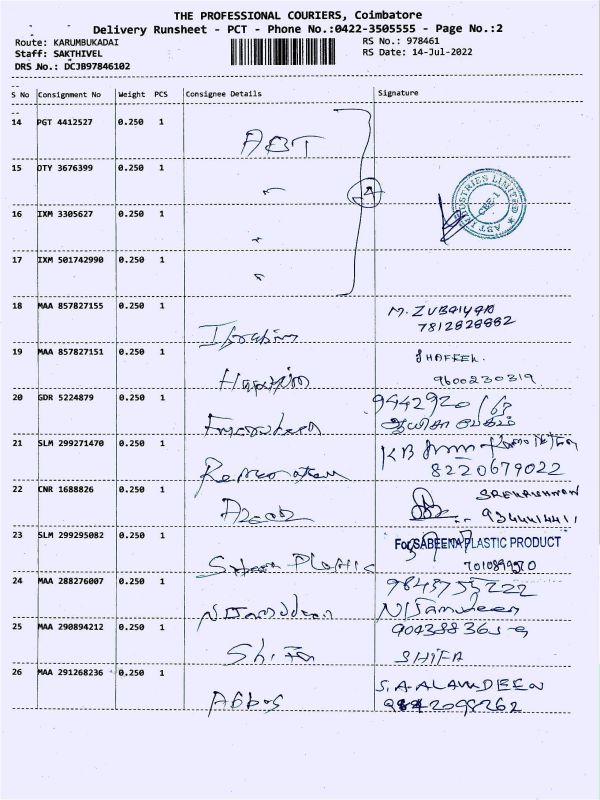 THE PROFESSIONAL COURIERS, Coimbatore
Delivery Runsheet - PCT - Phone No.:0422-3505555 - Page No.:2
Route: KARUMBUKADAI RS No.: 978461
Staff: SAKTHIVEL RS Date: 14-Jul-2022
DRS No.: DCJB97846102
S No Consignment No Weight PCS Consignee Details Signature
14 PGT 4412527 0.250 1
ABT
15 OTY 3676399 0.250 1
4
ABT INDUSTRIES LIMITED
CBE-1
16 IXM 3305627 0.250 1
17 IXM 501742990 0.250 1
18 MAA 857827155 0.250 1
Ibrahim M. ZUBAIYAR
7812828882
19 MAA 857827151 0.250 1
SHAFEEK.
9600230319
20 GDR 5224879 0.250 1
ஆயிசா பேகம்
21 SLM 299271470 0.250 1
KB
8220679022
22 CNR 1688826 0.250 1
9344414411
23 SLM 299295082 0.250 1
For SABEENA PLASTIC PRODUCT
Plastic
24 MAA 288276007 0.250 1
9843755222
NIsamudeen NIsamudeen
25 MAA 290894212 0.250 1
Shifa SHIFA
26 MAA 291268236 0.250 1
S.A ALAVDEEN
Abbas 9842098262